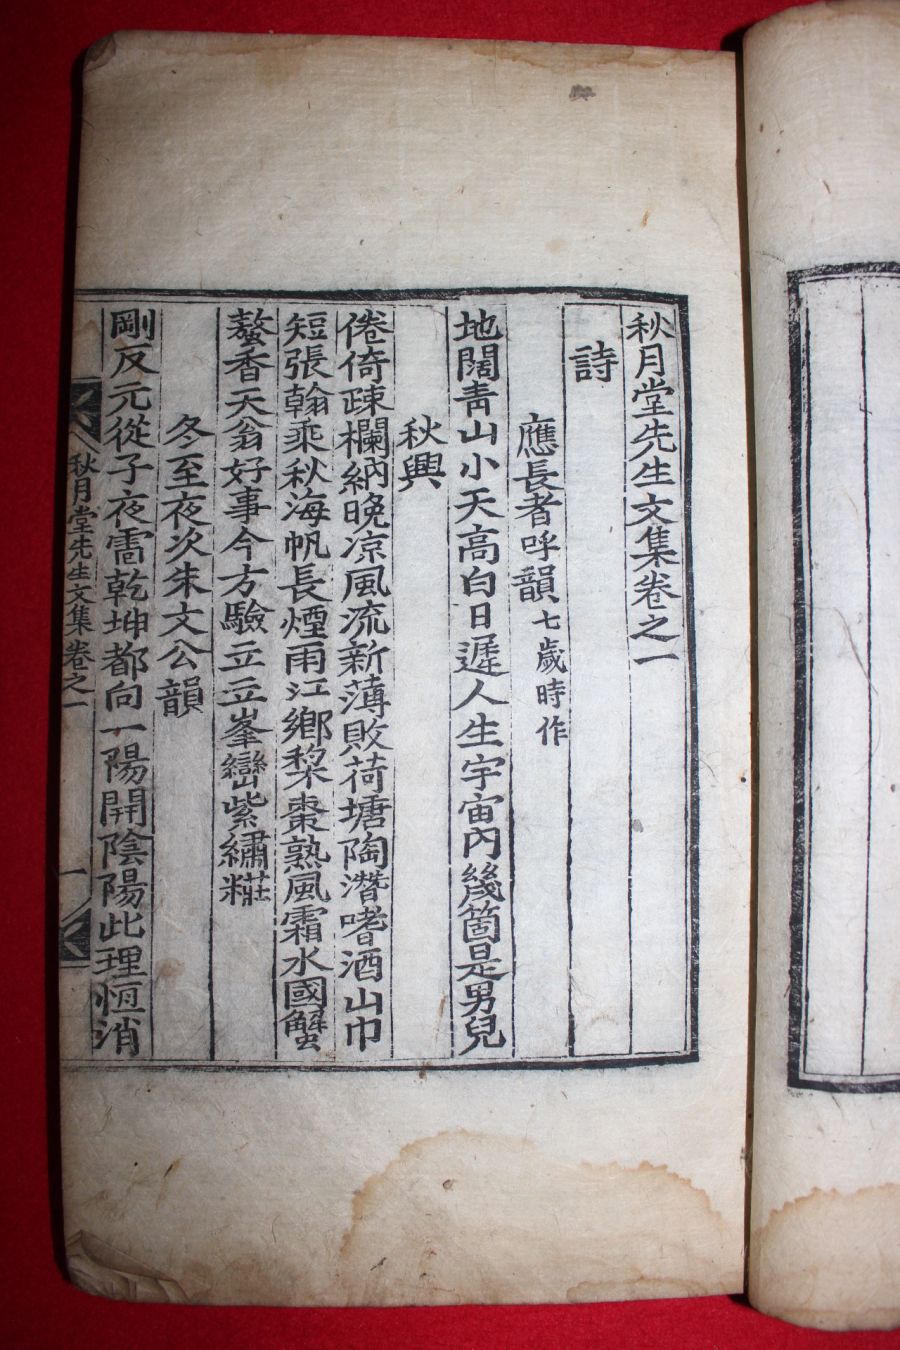 秋月堂先生文集卷之一
詩
應長者呼韻七歲時作
地闊靑山小天高白日遲人生宇宙內幾箇是男兒
秋興
倦倚疎欄納晚凉風流新薄敗荷塘陶潛嗜酒山巾
短張翰乘秋海帆長煙雨江鄉梨棗熟風霜水國蟹
螯香天翁好事今方驗立立峯巒紫繡粧
冬至夜次朱文公韻
剛反元從子夜需乾坤都向一陽開陰陽此理恒消
秋月堂先生文集卷之一
一